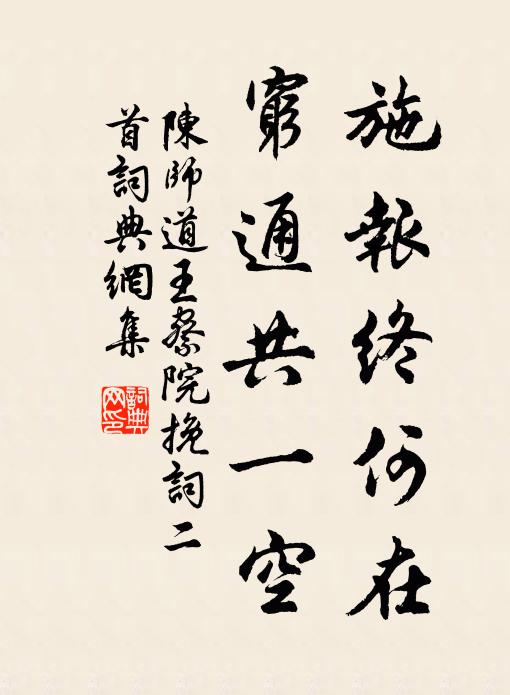 施報終何在
窮通共一空
陳師道王察院挽詞二
首詞典網集
詞典
网印